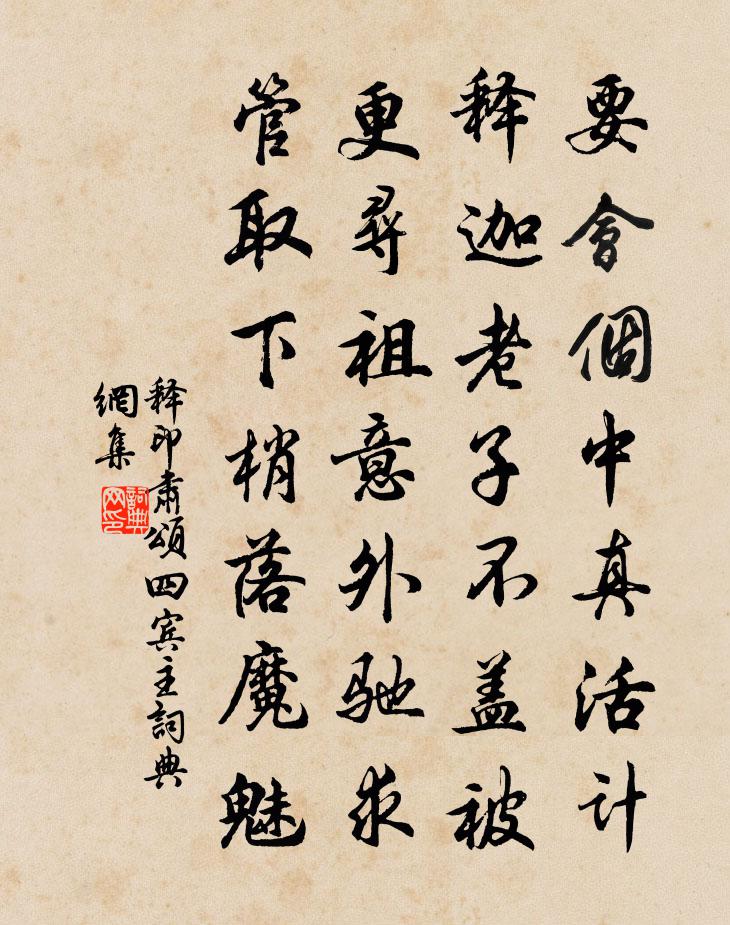 要會個中真活计
释迦老子不盖被
更尋祖意外驰求
管取下梢落魔魅
释印肃頌四宾主詞典
網集
詞典网印